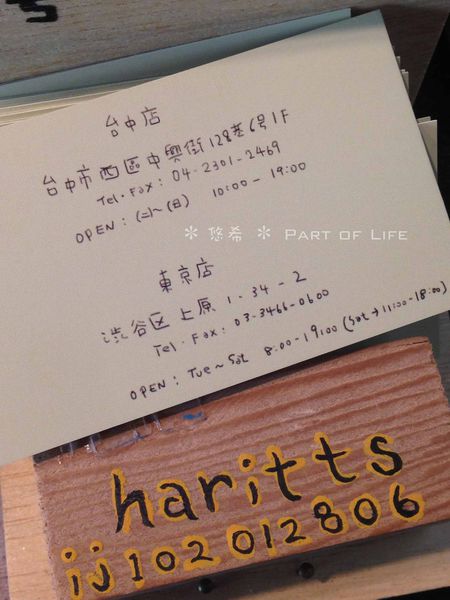 台中店
台中市西區中興街128巷6号1F
Tel·Fax: 04-2301-2469
OPEN: (二)~(日) 10:00-19:00
* 悠希 * PART OF LIFE
東京店
渋谷区上原 1-34-2
Tel·Fax: 03-3466-0600
OPEN: Tue~Sat 8:00-19:00 (Sat→11:00-18:00)
haritts
ij102012806